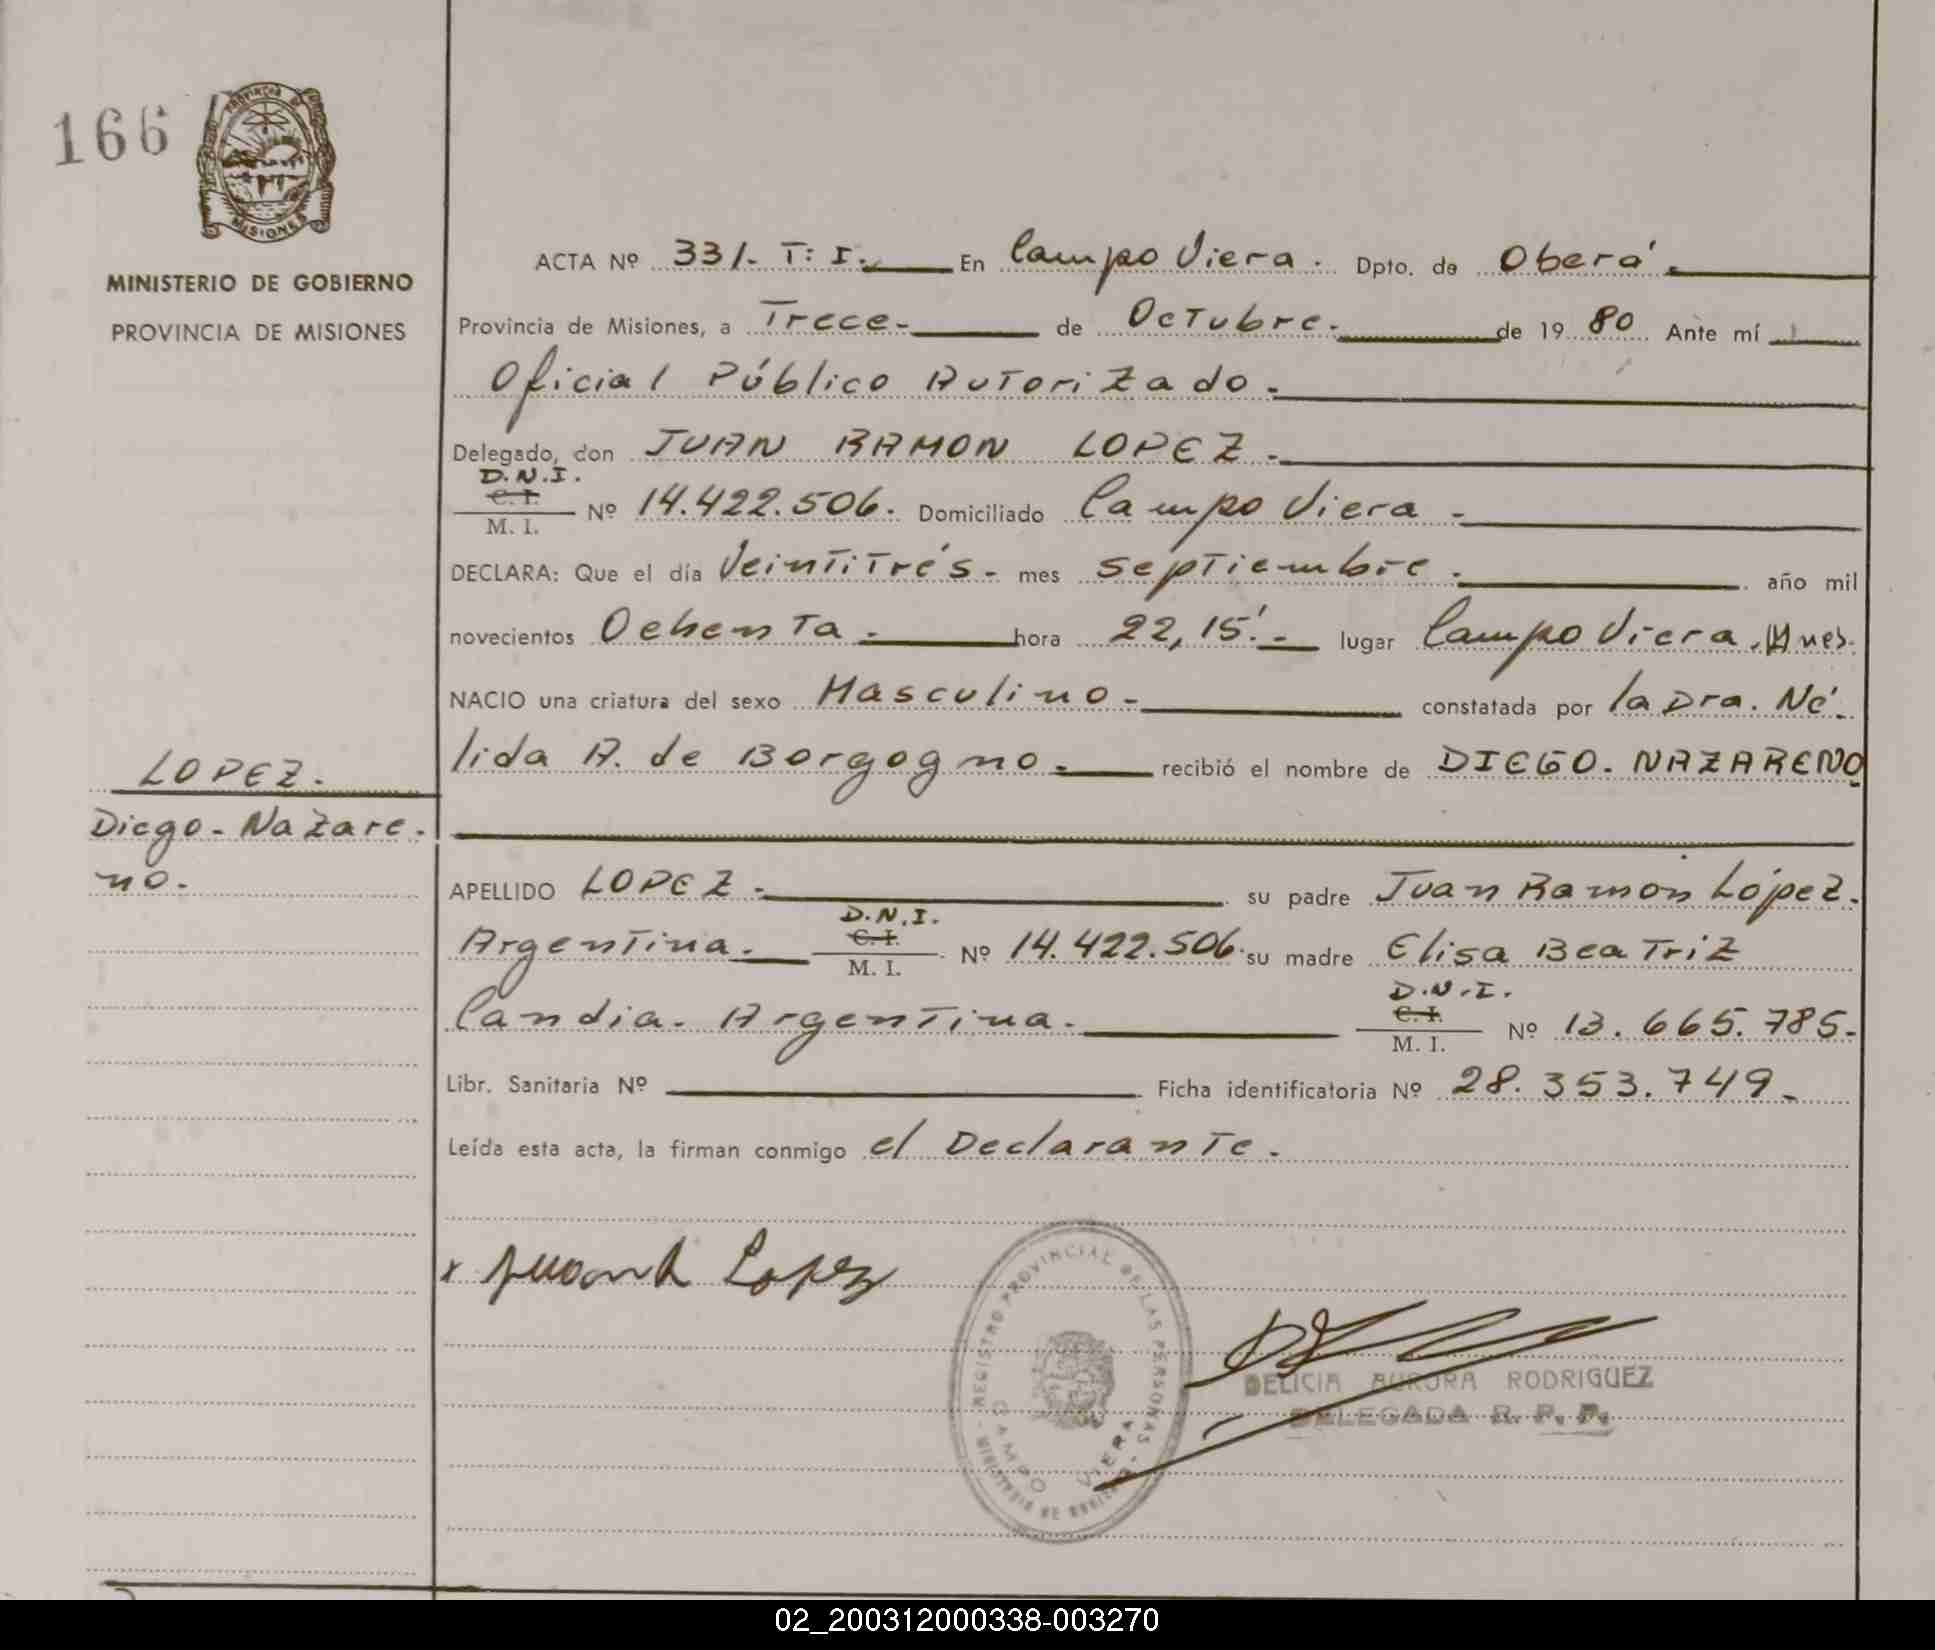 166
PROVINCIA DE
MISIONES
MINISTERIO DE GOBIERNO
PROVINCIA DE MISIONES
ACTA Nº 331. T: I. En Campo Viera. Dpto. de Oberá.
Provincia de Misiones, a Trece.- de Octubre. de 19 80 Ante mí
Oficial Público Autorizado.
Delegado, don JUAN RAMON LOPEZ.
D.N.I.
C. I.
M. I. Nº 14.422.506. Domiciliado Campo Viera.
DECLARA: Que el día Veintitrés. mes septiembre. año mil
novecientos Ochenta. hora 22,15'. lugar Campo Viera.
NACIO una criatura del sexo Masculino. constatada por la Dra. Né-
lida A. de Borgogno. recibió el nombre de DIEGO. NAZARENO
LOPEZ.
Diego. Nazare-
no.
APELLIDO LOPEZ. su padre Juan Ramón López.
Argentina. D.N.I.
C. I.
M. I. Nº 14.422.506. su madre Elisa Beatriz
Candia. Argentina. D.N.I.
C. I.
M. I. Nº 13.665.785.
Libr. Sanitaria Nº Ficha identificatoria Nº 28.353.749.
Leída esta acta, la firman conmigo el Declarante.
x Lopez
REGISTRO PROVINCIAL DE LAS PERSONAS
CAMPO VIERA
DELICIA AURORA RODRIGUEZ
DELEGADA R. P. P.
02_200312000338-003270